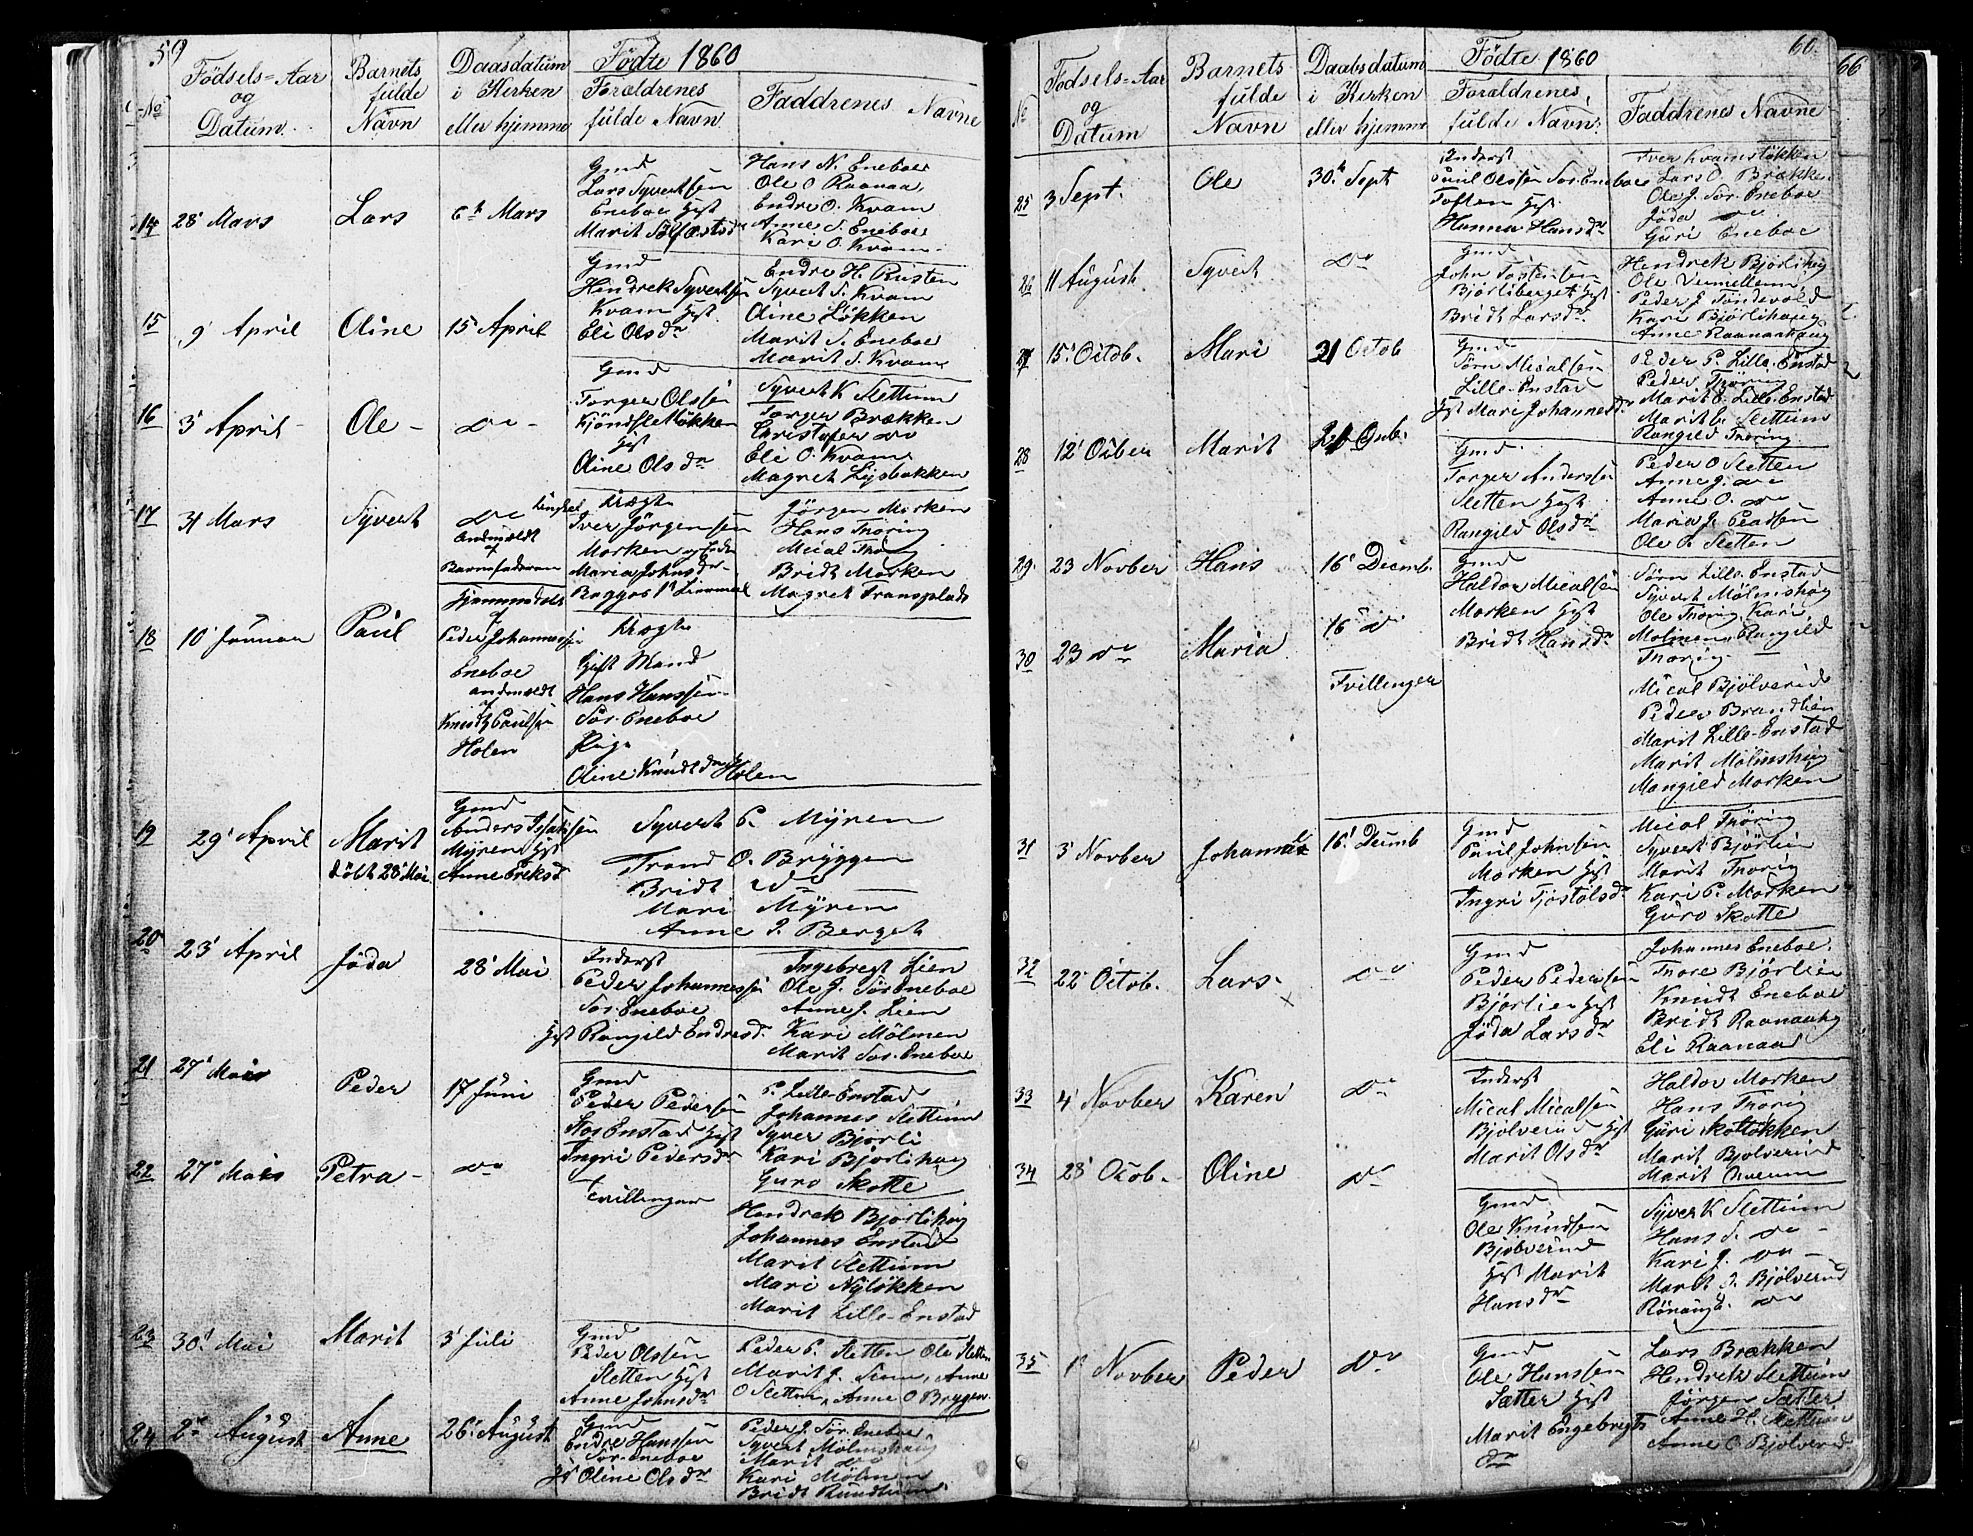 59
Födte 1860
No
Födsels=Aar og Datum
Barnets fulde Navn
Daabsdatum i Kirken eller hjemme
Forældrenes fulde Navn
Faddrenes Navne
14
28' Mars
Lars
Mars
Gmd
Lars Syvertsen
Eneboe Hust
Marit
Hans N. Eneboe
Ole O Raanaa
Endre O. Kvam
Anne S. Eneboe
Kari O. Kvam
15
9' April
Oline
15 April
Gmd
Hendrek Syvertsen
Kvam Hust
Eli Olsdr
Endre H. Rusten
Syvert S. Kvam
Oline Løkken
Marit S. Eneboe
Marit S. Kvam
16
3' April
Ole
do
Gmd
Torger Olssen
Hust
Oline Olsdr
Syvert K Slettum
Torger Brækken
Christofer do
Eli O. Kvam
Magret Lysbakken
17
31 Mars
Syvert
do
andmeldt
af
Barnefaderen
Uægte
Iver Jörgensen
Morken
Maria Johnsdr
Jörgen Morken
Hans Trøring
Mical
Bridt Morken
Magret
18
10' Januar
Paul
Hjemmedöbt
af
Peder Johannessen
Eneboe
andmeldt
af
Knudt Paulsen
Holen
Uægte
Gift Mand
Hans Hanssen
Sör-Eneboe
Pige
Oline Knudtdr Holen
19
29' April
Marit
döbt 28 Mai
Gmd
Anders
Myren Hust
Anne Ereksd
Syvert P. Myren
Trond O. Bryggen
Bridt do
Mari Myren
Anne I. Berget
20
23' April
Jöda
28' Mai
Inderst
Peder Johannessen
Sör Eneboe
Hust Rangild Endresd
Ingebregt Lien
Ole J. Sör Eneboe
Anne J. Lien
Kari Mölmen
Marit Sör-Eneboe
21
27' Mai
Peder
17 Juni
Gmd
Peder Pedersen
Stor Enstad Hust
Ingri Pedersdr
P. Lille-Enstad
Johannes Slettum
Syver Bjorli
Kari Bjorlihaug
Guro Skotte
22
27' Mai
Petra
do
Tvillinger
Hendrek Bjorlihaug
Johannes Enstad
Marit Slettum
Mari Nyløkken
Marit Lille-Enstad
23
30' Mai
Marit
3' Juli
Gmd
Peder Olssen
Sletten Hust
Anne Johnsdr
Peder P. Sletten Ole Sletten
Marit J. Anne
O Slettum, Anne O Brygen
24
2 August
Anne
26' August
Gmd
Endre Hanssen
Sör-Eneboe
Oline Olsdr
Peder J. Sör-Eneboe
Syvert Mölmshaug
Marit do
Kari Mölmen
Bridt
60
66
Födte 1860
No
Födsels=Aar og Datum
Barnets fulde Navn
Daabsdatum i Kirken eller hjemme
Forældrenes fulde Navn
Faddrenes Navne
25
3 Sept.
Ole
30' Sept
Inderst
Paul Olssen Sör-Eneboe
Toften Hust
Hanna Hansdr
Iver Kvamsløkken
Lars O. Brækken
Ole J. Sör Eneboe
Jöda do
Guri Eneboe
26
11 August
Syvert
do
Gmd
John Tostensen
Bjorliberget Hust
Bridt Larsdr
Hendrek Bjorlihaug
Ole
Peder J. Tondevold
Kari Bjorlihaug
Anne Raanaahaug
27
15' Octob.
Mari
21 Octob
Gmd
Sörn Micalsen
Lille-Enstad
Hust Mari Johannesdr
Peder P. Lille-Enstad
Peder Trøring
Marit O. Lille-Enstad
Marit Slettum
Rangild Trøring
28
12' Octber
Marit
21
Gmd
Torger Anderssen
Sletten Hust
Rangild Olsdr
Peder O Sletten
Anne J. do
Anne O. do
Maria J.
Ole P. Sletten
29
23 Novber
Hans
16' Decmb.
Gmd
Haldor Micalsen
Morken Hust
Bridt Hansdr
Sörn Lille-Enstad
Syvert Mölmshaug
Ole Trøring Kari
Molmen Rangild
Trøring
30
23 do
Maria
16' do
Tvillinger
Mical Bjölverud
Peder Brandlien
Marit Lille-Enstad
Marit Mölmshaug
Mangild Morken
31
3' Novber
Johannes
16' Decmb
Gmd
Paul Johnsen
Morken Hust
Ingri Tjostolsdr
Mical Trøring
Syvert Bjørlien
Marit Trøring
Kari P. Morken
Guro Skotte
32
22' Octob.
Lars
do
Gmd
Peder Pedersen
Bjorlien Hust
Jöda Larsdr
Johannes Eneboe
Tore Bjørlien
Knudt Eneboe
Bridt Raanaahg
Eli Raanaa
33
4' Novber
Karen
do
Inderst
Mical Micalsen
Bjölverud Hust
Marit Olsdr
Haldor Morken
Hans Trøring
Guri Skotløkken
Marit Bjolverud
Marit
34
28' Octob.
Oline
do
Gmd
Ole Knudsen
Bjölverud
Hust Marit
Hansdr
Syver K Slettum
Hans S. do
Kari J. do
Marit I. Bjölverud
do
35
1' Novber
Peder
do
Gmd
Ole Hanssen
Sætter Hust
Marit Engebregts
dr
Lars Brækken
Hendrek Slettum
Jörgen Sætter
Anne H. Slettum
Anne O Bjolverud